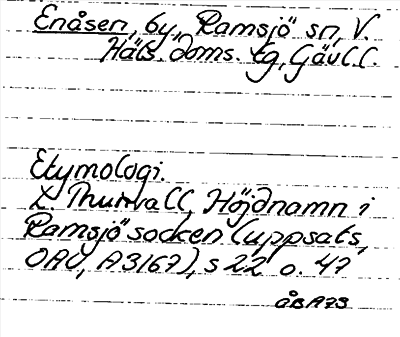 Enåsen, by, Ramsjö sn, V.
Häls. doms. tg, Gävl.l.
Etymologi.
L. Thunvall, Höjdnamn i
Ramsjö socken (uppsats,
OAU, A3167), s 22 o. 47
åBA73